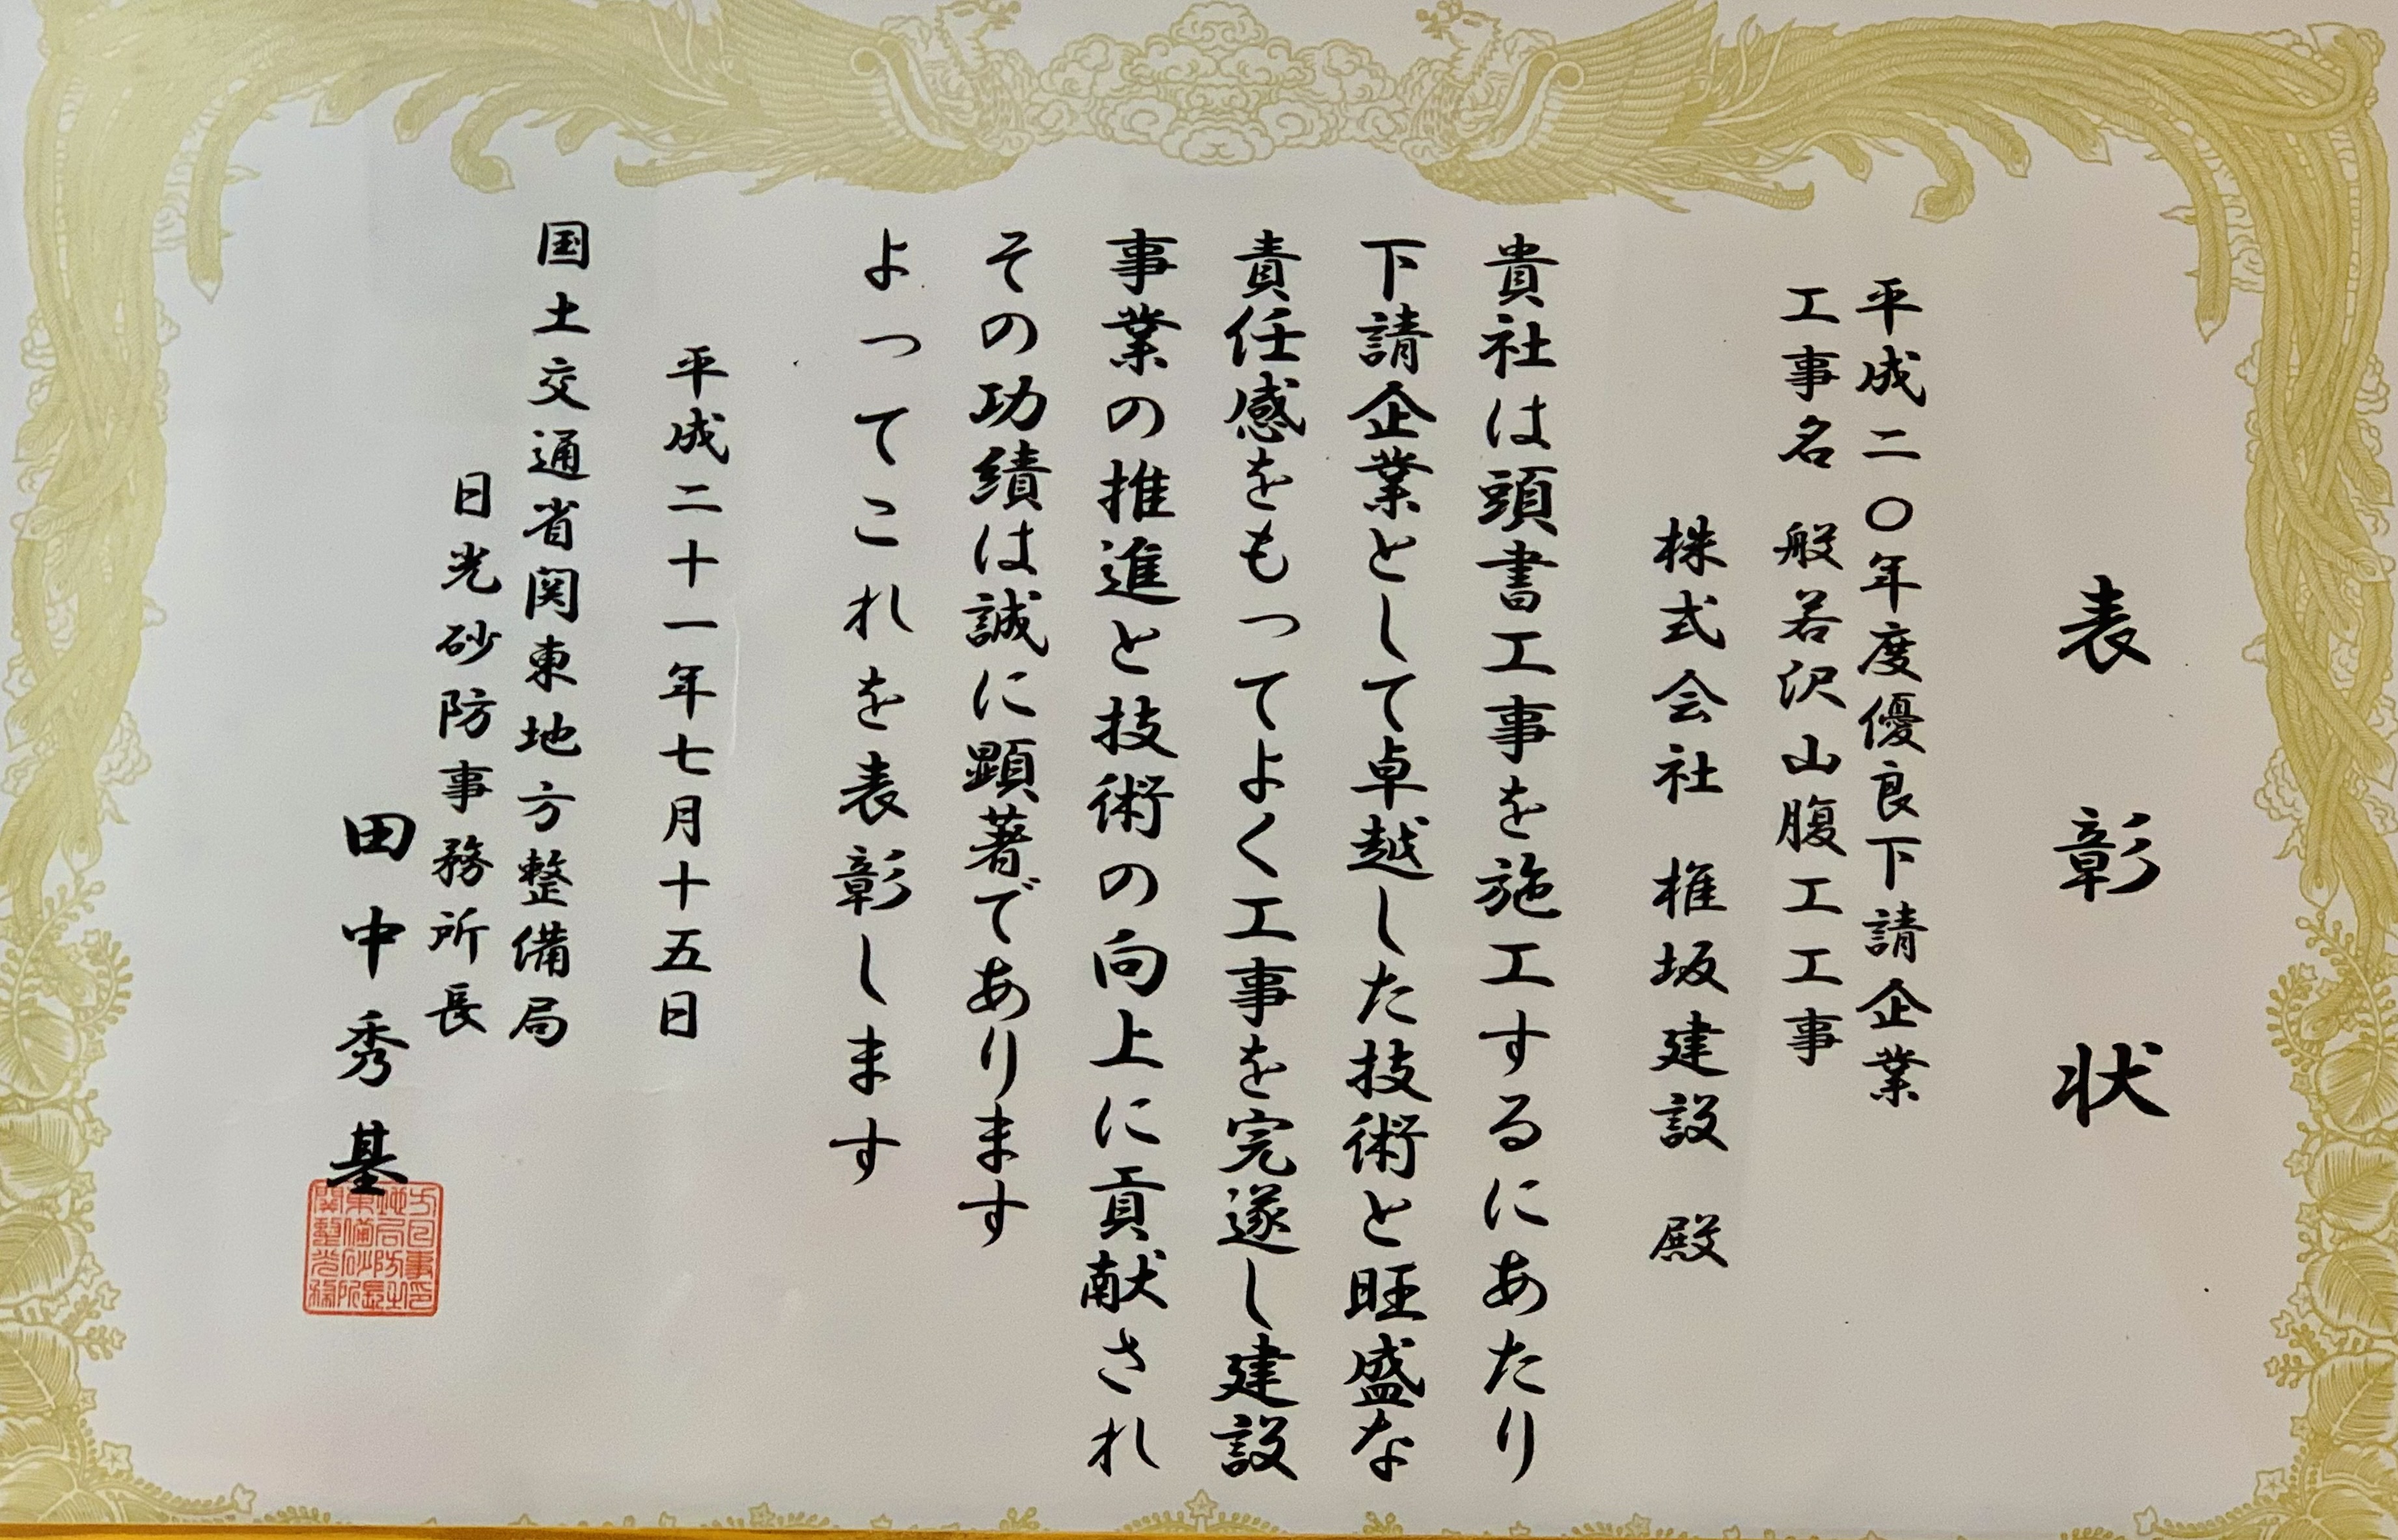 表彰状
平成二〇年度優良下請企業
工事名 般若沢山腹工工事
株式会社 権坂建設 殿
貴社は頭書工事を施工するにあたり
下請企業として卓越した技術と旺盛な
責任感をもってよく工事を完遂し建設
事業の推進と技術の向上に貢献され
その功績は誠に顕著であります
よってこれを表彰します
平成二十一年七月十五日
国土交通省関東地方整備局
日光砂防事務所長
田中秀基